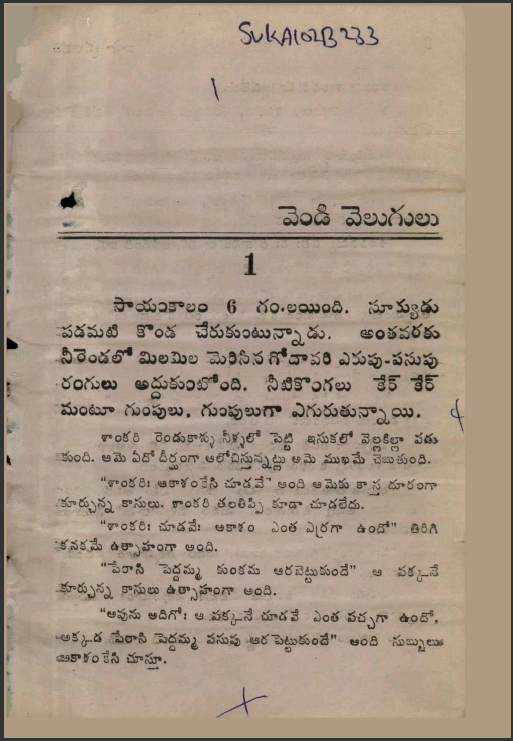 SUKA102B233
వెండి వెలుగులు
1
సాయంకాలం 6 గం.లయింది. సూర్యుడు
పడమటి కొండ చేరుకుంటున్నాడు. అంతవరకు
నీరెండలో మిలమిల మెరిసిన గోదావరి ఎరుపు-పసుపు
రంగులు అద్దుకుంటోంది. నీటికొంగలు కేర్ కేర్
మంటూ గుంపులు, గుంపులుగా ఎగురుతున్నాయి.
శాంకరి రెండుకాళ్ళు నీళ్ళలో పెట్టి ఇసుకలో వెల్లకిల్లా పడు
కుంది. ఆమె ఏదో దీర్ఘంగా ఆలోచిస్తున్నట్లు ఆమె ముఖమే చెబుతుంది.
"శాంకరీః ఆకాశంకేసి చూడవే" అంది ఆమెకు కాస్త దూరంగా
కూర్చున్న కాసులు. శాంకరి తలతిప్పి కూడా చూడలేదు.
"శాంకరీః చూడవేః ఆకాశం ఎంత ఎర్రగా ఉందో" తిరిగి
కనకమే ఉత్సాహంగా అంది.
"పేరాసి పెద్దమ్మ కుంకమ ఆరబెట్టుకుందే" ఆ పక్కనే
కూర్చున్న కాసులు ఉత్సాహంగా అంది.
"అవును అదిగోః ఆ పక్కనే చూడవే ఎంత పచ్చగా ఉందో,
అక్కడ పేరాసి పెద్దమ్మ పసుపు ఆరపెట్టుకుందే" అంది సుబ్బులు
ఆకాశంకేసి చూస్తూ.